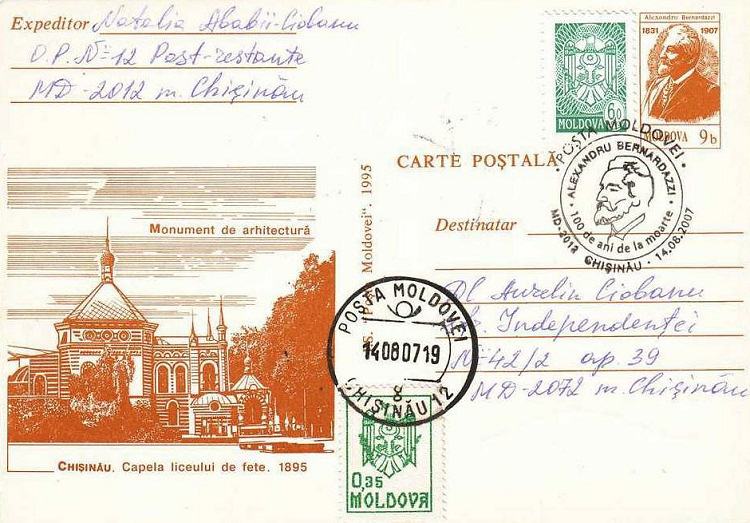 Expeditor Natalia Ababii-Ciobanu
O.P. Nº 12 Post-restante
MD-2012 m. Chişinău
60
MOLDOVA
Alexandru Bernardazzi
1831 1907
MOLDOVA 9 b
CARTE POŞTALĂ
POŞTA MOLDOVEI
ALEXANDRU BERNARDAZZI
100 de ani de la moarte
MD-2012 CHIŞINĂU · 14.08.2007
Monument de arhitectură
Moldovei". 1995
Destinatar
Dl Aurelin Ciobanu
Independenţei
Nº 42/2 ap. 39
MD-2072 m. Chişinău
POŞTA MOLDOVEI
14080719
8
CHIŞINĂU 12
0,35
MOLDOVA
CHIŞINĂU. Capela liceului de fete. 1895